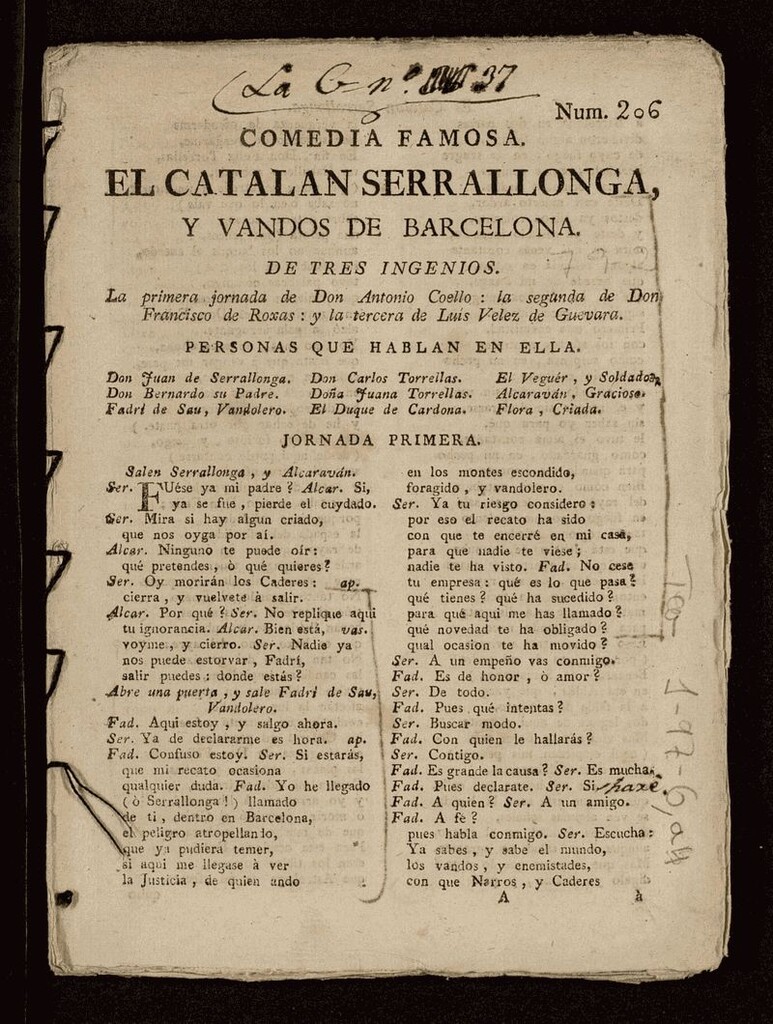 La C nº 37
Num. 206
COMEDIA FAMOSA.
EL CATALAN SERRALLONGA,
Y VANDOS DE BARCELONA.
DE TRES INGENIOS.
La primera jornada de Don Antonio Coello : la segunda de Don
Francisco de Roxas : y la tercera de Luis Velez de Guevara.
PERSONAS QUE HABLAN EN ELLA.
Don Juan de Serrallonga. Don Carlos Torrellas. El Veguér , y Soldados.
Don Bernardo su Padre. Doña Juana Torrellas. Alcaraván, Gracioso.
Fadrí de Sau, Vandolero. El Duque de Cardona. Flora , Criada.
JORNADA PRIMERA.
Salen Serrallonga , y Alcaraván.
Ser. FUése ya mi padre ? Alcar. Si,
ya se fue , pierde el cuydado.
Ser. Mira si hay algun criado,
que nos oyga por aí.
Alcar. Ninguno te puede oír:
qué pretendes , ò qué quieres?
Ser. Oy morirán los Caderes : ap.
cierra , y vuelvete à salir.
Alcar. Por qué ? Ser. No replique aqui
tu ignorancia. Alcar. Bien está, vas.
voyme , y cierro. Ser. Nadie ya
nos puede estorvar , Fadrí,
salir puedes : donde estás?
Abre una puerta , y sale Fadrí de Sau,
Vandolero.
Fad. Aqui estoy , y salgo ahora.
Ser. Ya de declararme es hora. ap.
Fad. Confuso estoy. Ser. Si estarás,
que mi recato ocasiona
qualquier duda. Fad. Yo he llegado
( ò Serrallonga ! ) llamado
de ti , dentro en Barcelona,
el peligro atropellando,
que ya pudiera temer,
si aqui me llegase à vér
la Justicia , de quien ando
en los montes escondido,
foragido , y vandolero.
Ser. Ya tu riesgo considero :
por eso el recato ha sido
con que te encerré en mi casa,
para que nadie te viese ;
nadie te ha visto. Fad. No cese
tu empresa : qué es lo que pasa?
qué tienes ? qué ha sucedido ?
para qué aqui me has llamado ?
qué novedad te ha obligado ?
qual ocasion te ha movido ?
Ser. A un empeño vas conmigo.
Fad. Es de honor , ò amor ?
Ser. De todo.
Fad. Pues qué intentas ?
Ser. Buscar modo.
Fad. Con quien le hallarás ?
Ser. Contigo.
Fad. Es grande la causa ? Ser. Es mucha.
Fad. Pues declarate. Ser. Si haré.
Fad. A quien ? Ser. A un amigo.
Fad. A fe ?
pues habla conmigo. Ser. Escucha :
Ya sabes , y sabe el mundo,
los vandos , y enemistades,
con que Narros , y Caderes
A à